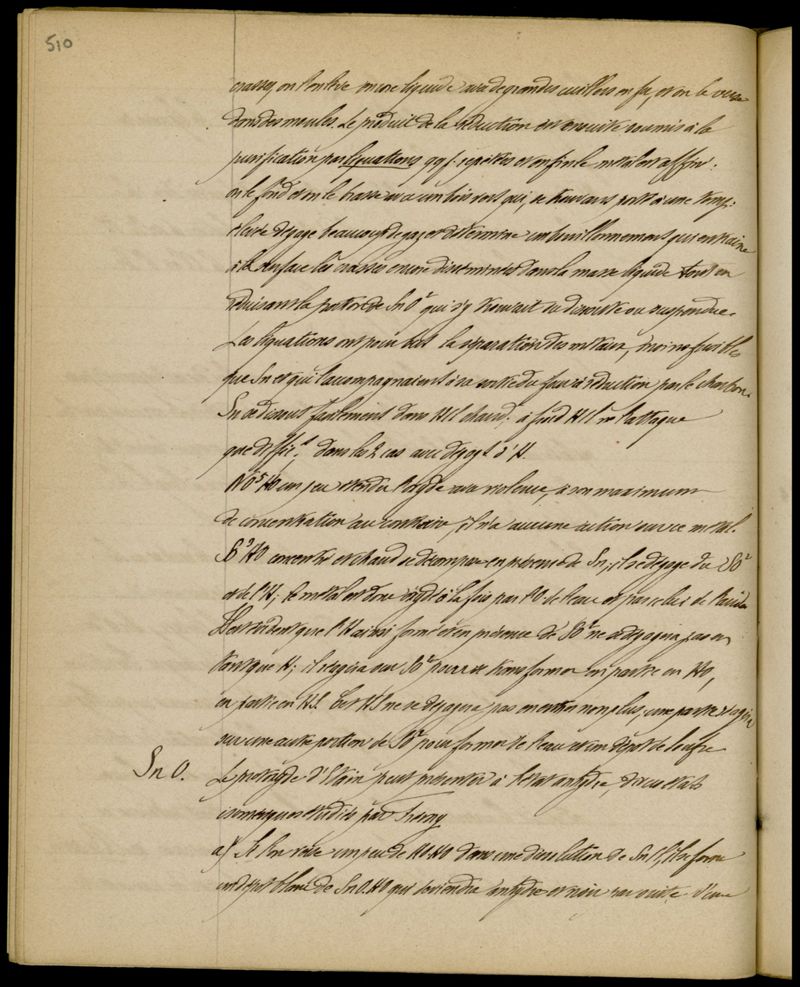 510
crasses, on l'enlève encore liquide avec de grandes cuillers en fer, et on le verse
dans des moules. Le produit de la réduction est ensuite soumis à la
purification par liquations qq f. répétées et enfin le métal est affiné :
on le fond et on le brasse avec un bois vert qui, se trouvant porté à une temp-
érature dégage beaucoup de gaz et détermine un bouillonnement qui entraîne
à la surface les crasses encore disséminées dans la masse liquide tout en
réduisant la portion de SnO² qui s'y trouvait dissoute ou suspendue.
Les liquations ont pour but la séparation des métaux, moins fusibles
que Sn et qui l'accompagnaient à sa sortie du four à réduction par le charbon.
Sn se dissout facilement dans HCl chaud. à froid HCl ne l'attaque
que diffic.t dans les 2 cas avec dégag.t d'H.
NO⁵HO un peu étendu l'oxyde avec violence, à son maximum
de concentration au contraire, il n'a aucune action sur ce métal.
SO³HO concentré et chaud se décompose en présence de Sn ; il se dégage du SO²
et de l'H ; le métal est donc oxydé à la fois par l'O de l'eau et par celui de l'acide
Il est évident que l'H ainsi formé et en présence de SO² ne se dégagera pas en
tant que H ; il réagira sur SO² pour se transformer en partie en HO,
en partie en HS. Cet HS ne se dégagera pas en entier non plus, une partie réagira
sur une autre portion de SO² pour former de l'eau et un dépôt de soufre
SnO. Le protoxyde d'Étain peut présenter à l'état anhydre, deux états
isomériques étudiés par Fremy
a) Si l'on verse un peu de KO.HO dans une dissolution de SnCl, il se forme
un dépôt blanc de SnO.HO qui deviendra anhydre et noir par suite d'une